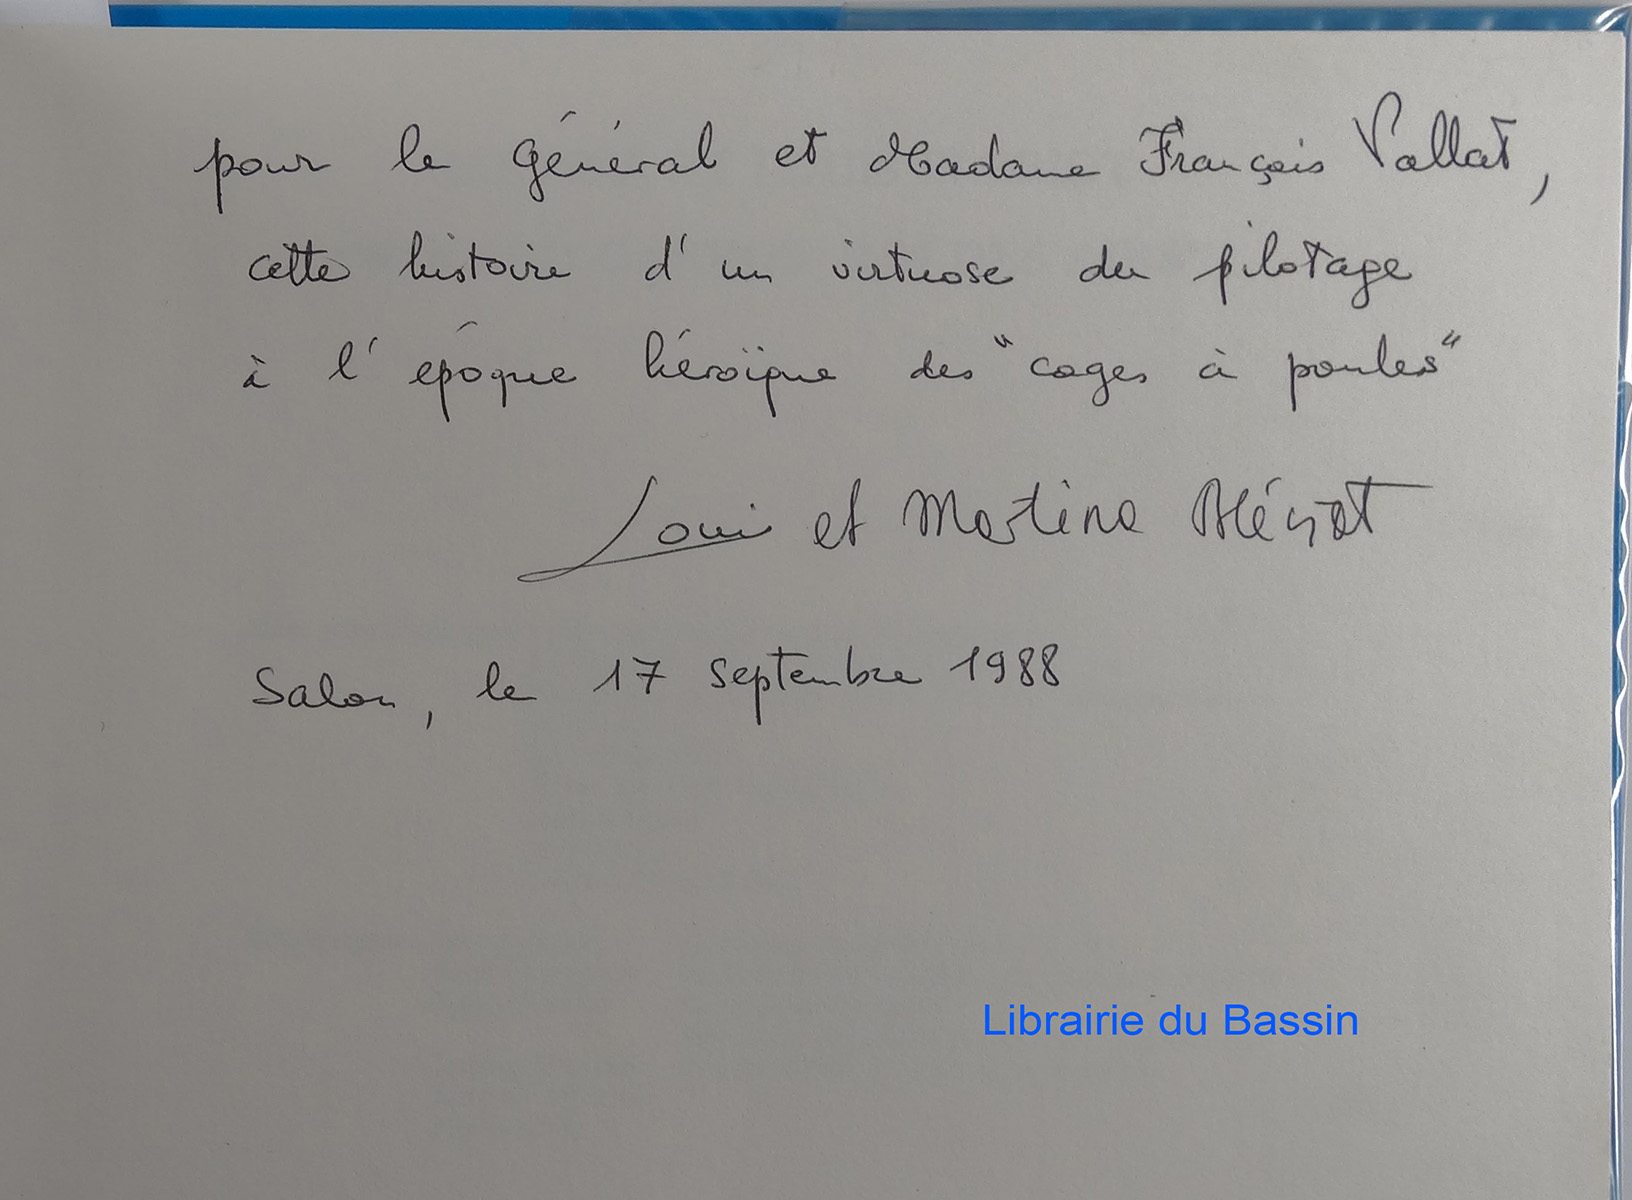 pour le Général et Madame François Vallat,
cette histoire d'un virtuose du pilotage
à l'époque héroïque des "cages à poules"
Louis et Martine
Salon, le 17 septembre 1988
Librairie du Bassin